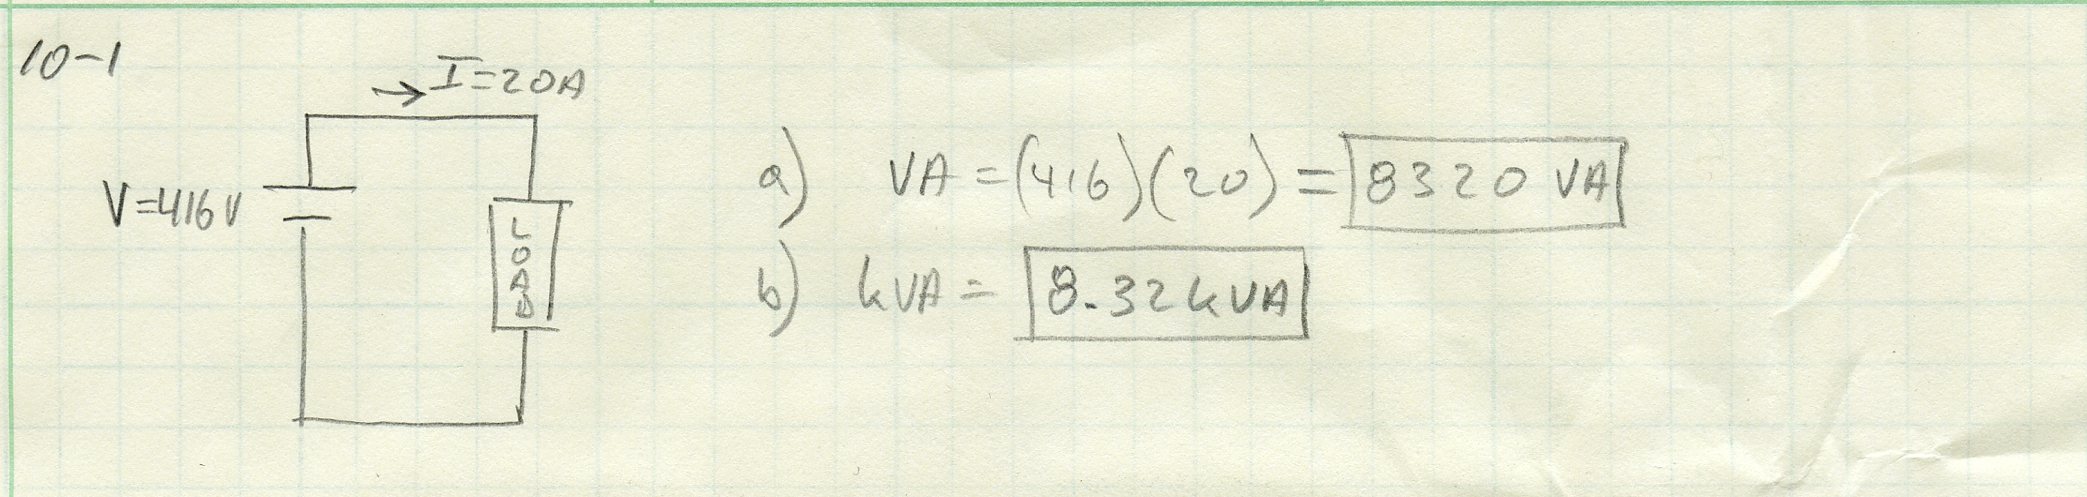 10-1
I=20A
V=416V
LOAD
a) VA = (416)(20) = 8320 VA
b) kVA = 8.32 kVA